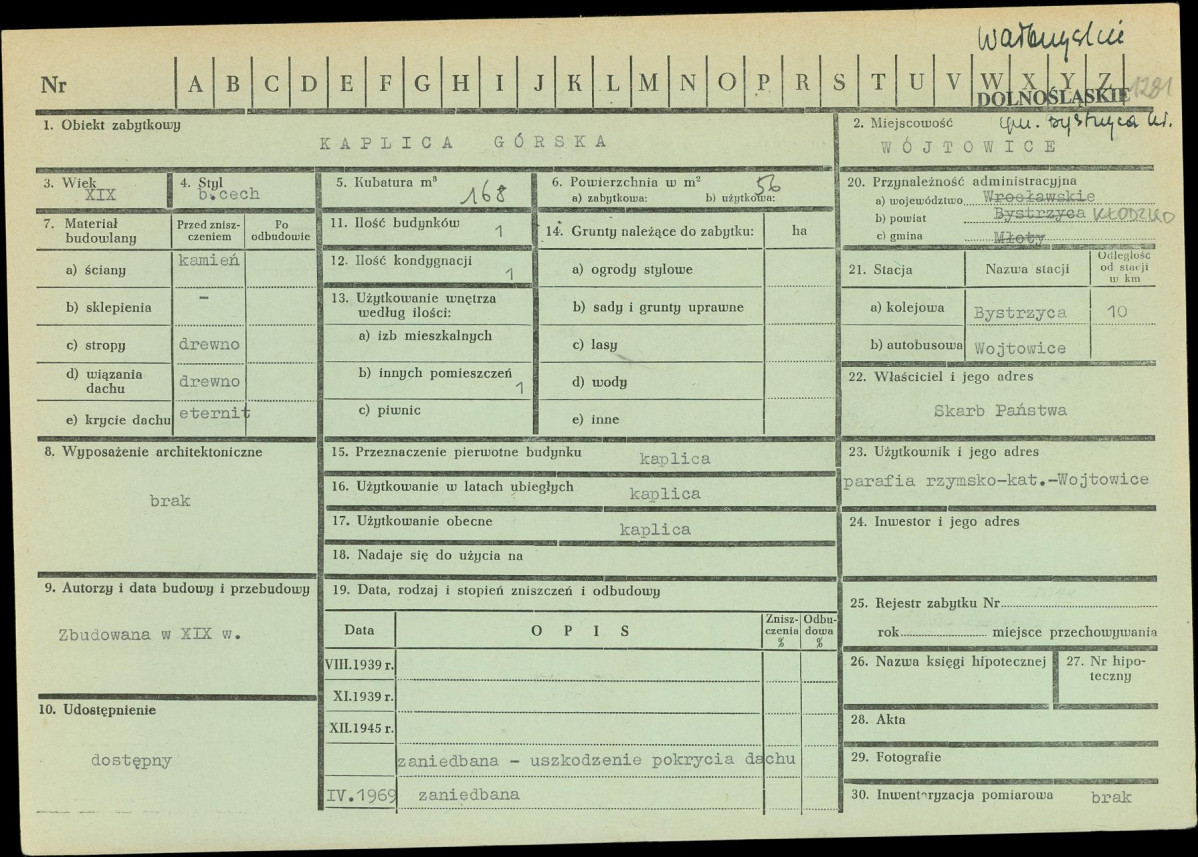 Wałbrzyskie
Nr A B C D E F G H I J K L M N O P R S T U V W X Y Z 1281
DOLNOŚLĄSKIE
1. Obiekt zabytkowy
KAPLICA GÓRSKA
2. Miejscowość gm. Bystrzyca Kł.
WÓJTOWICE
3. Wiek
XIX
4. Styl
b.cech
5. Kubatura m³
168
6. Powierzchnia w m² 56
a) zabytkowa: b) użytkowa:
20. Przynależność administracyjna
a) województwo Wrocławskie
b) powiat Bystrzyca KŁODZKO
c) gmina Młoty
7. Materiał budowlany
Przed zniszczeniem
Po odbudowie
a) ściany kamień
b) sklepienia –
c) stropy drewno
d) wiązania dachu drewno
e) krycie dachu eternit
11. Ilość budynków 1
12. Ilość kondygnacji 1
13. Użytkowanie wnętrza według ilości:
a) izb mieszkalnych
b) innych pomieszczeń 1
c) piwnic
14. Grunty należące do zabytku: ha
a) ogrody stylowe
b) sady i grunty uprawne
c) lasy
d) wody
e) inne
21. Stacja Nazwa stacji Odległość od stacji w km
a) kolejowa Bystrzyca 10
b) autobusowa Wojtowice
22. Właściciel i jego adres
Skarb Państwa
8. Wyposażenie architektoniczne
brak
15. Przeznaczenie pierwotne budynku kaplica
16. Użytkowanie w latach ubiegłych kaplica
17. Użytkowanie obecne kaplica
18. Nadaje się do użycia na
23. Użytkownik i jego adres
parafia rzymsko-kat.-Wojtowice
24. Inwestor i jego adres
9. Autorzy i data budowy i przebudowy
Zbudowana w XIX w.
19. Data, rodzaj i stopień zniszczeń i odbudowy
Data OPIS Zniszczenia % Odbudowa %
VIII.1939 r.
XI.1939 r.
XII.1945 r.
zaniedbana – uszkodzenie pokrycia dachu
IV.1969 zaniedbana
25. Rejestr zabytku Nr
rok miejsce przechowywania
26. Nazwa księgi hipotecznej
27. Nr hipoteczny
10. Udostępnienie
dostępny
28. Akta
29. Fotografie
30. Inwentaryzacja pomiarowa brak